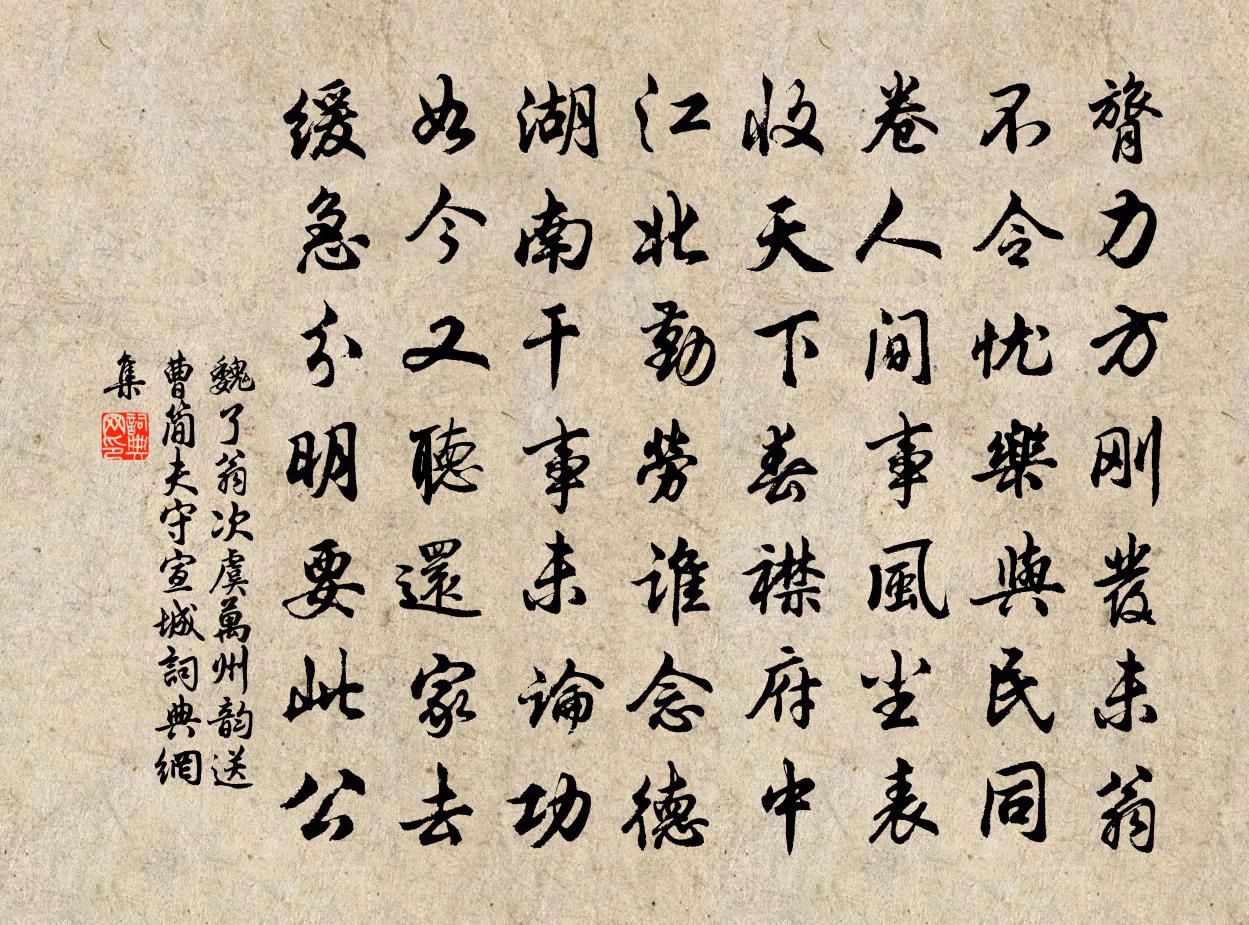 膂力方刚發未翁
不令忧樂與民同
卷人间事風尘表
收天下春襟府中
江北勤勞谁念德
湖南干事未論功
如今又聽還家去
缓急分明要此公
魏了翁次虞萬州韵送
曹简夫守宣城詞典網
集
詞典
网印